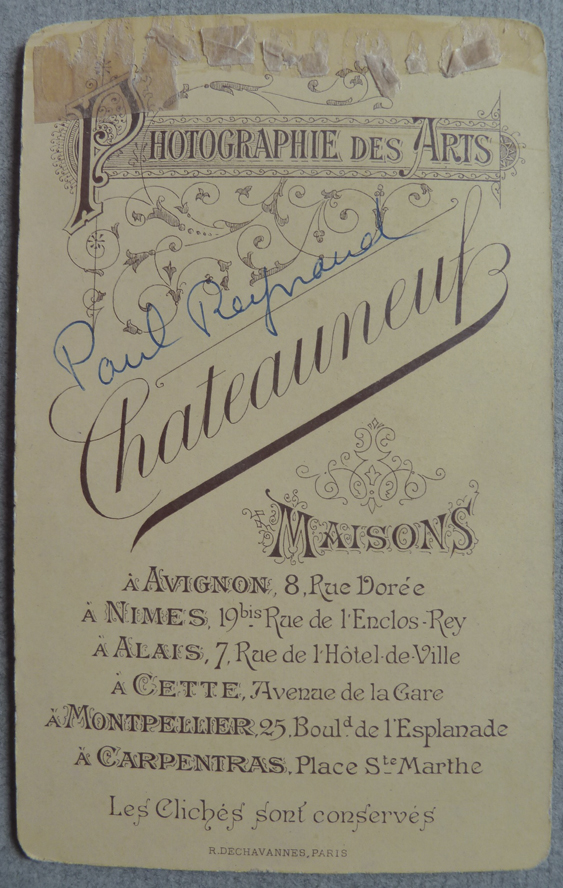 PHOTOGRAPHIE DES ARTS
Paul Reynaud
Chateauneuf
MAISONS
à AVIGNON, 8, Rue Dorée
à NIMES, 19bis Rue de l'Enclos-Rey
à ALAIS, 7, Rue de l'Hôtel-de-Ville
à CETTE, Avenue de la Gare
à MONTPELLIER, 25, Boulᵈ de l'Esplanade
à CARPENTRAS, Place Sᵗᵉ Marthe
Les Clichés sont conservés
R. DECHAVANNES, PARIS